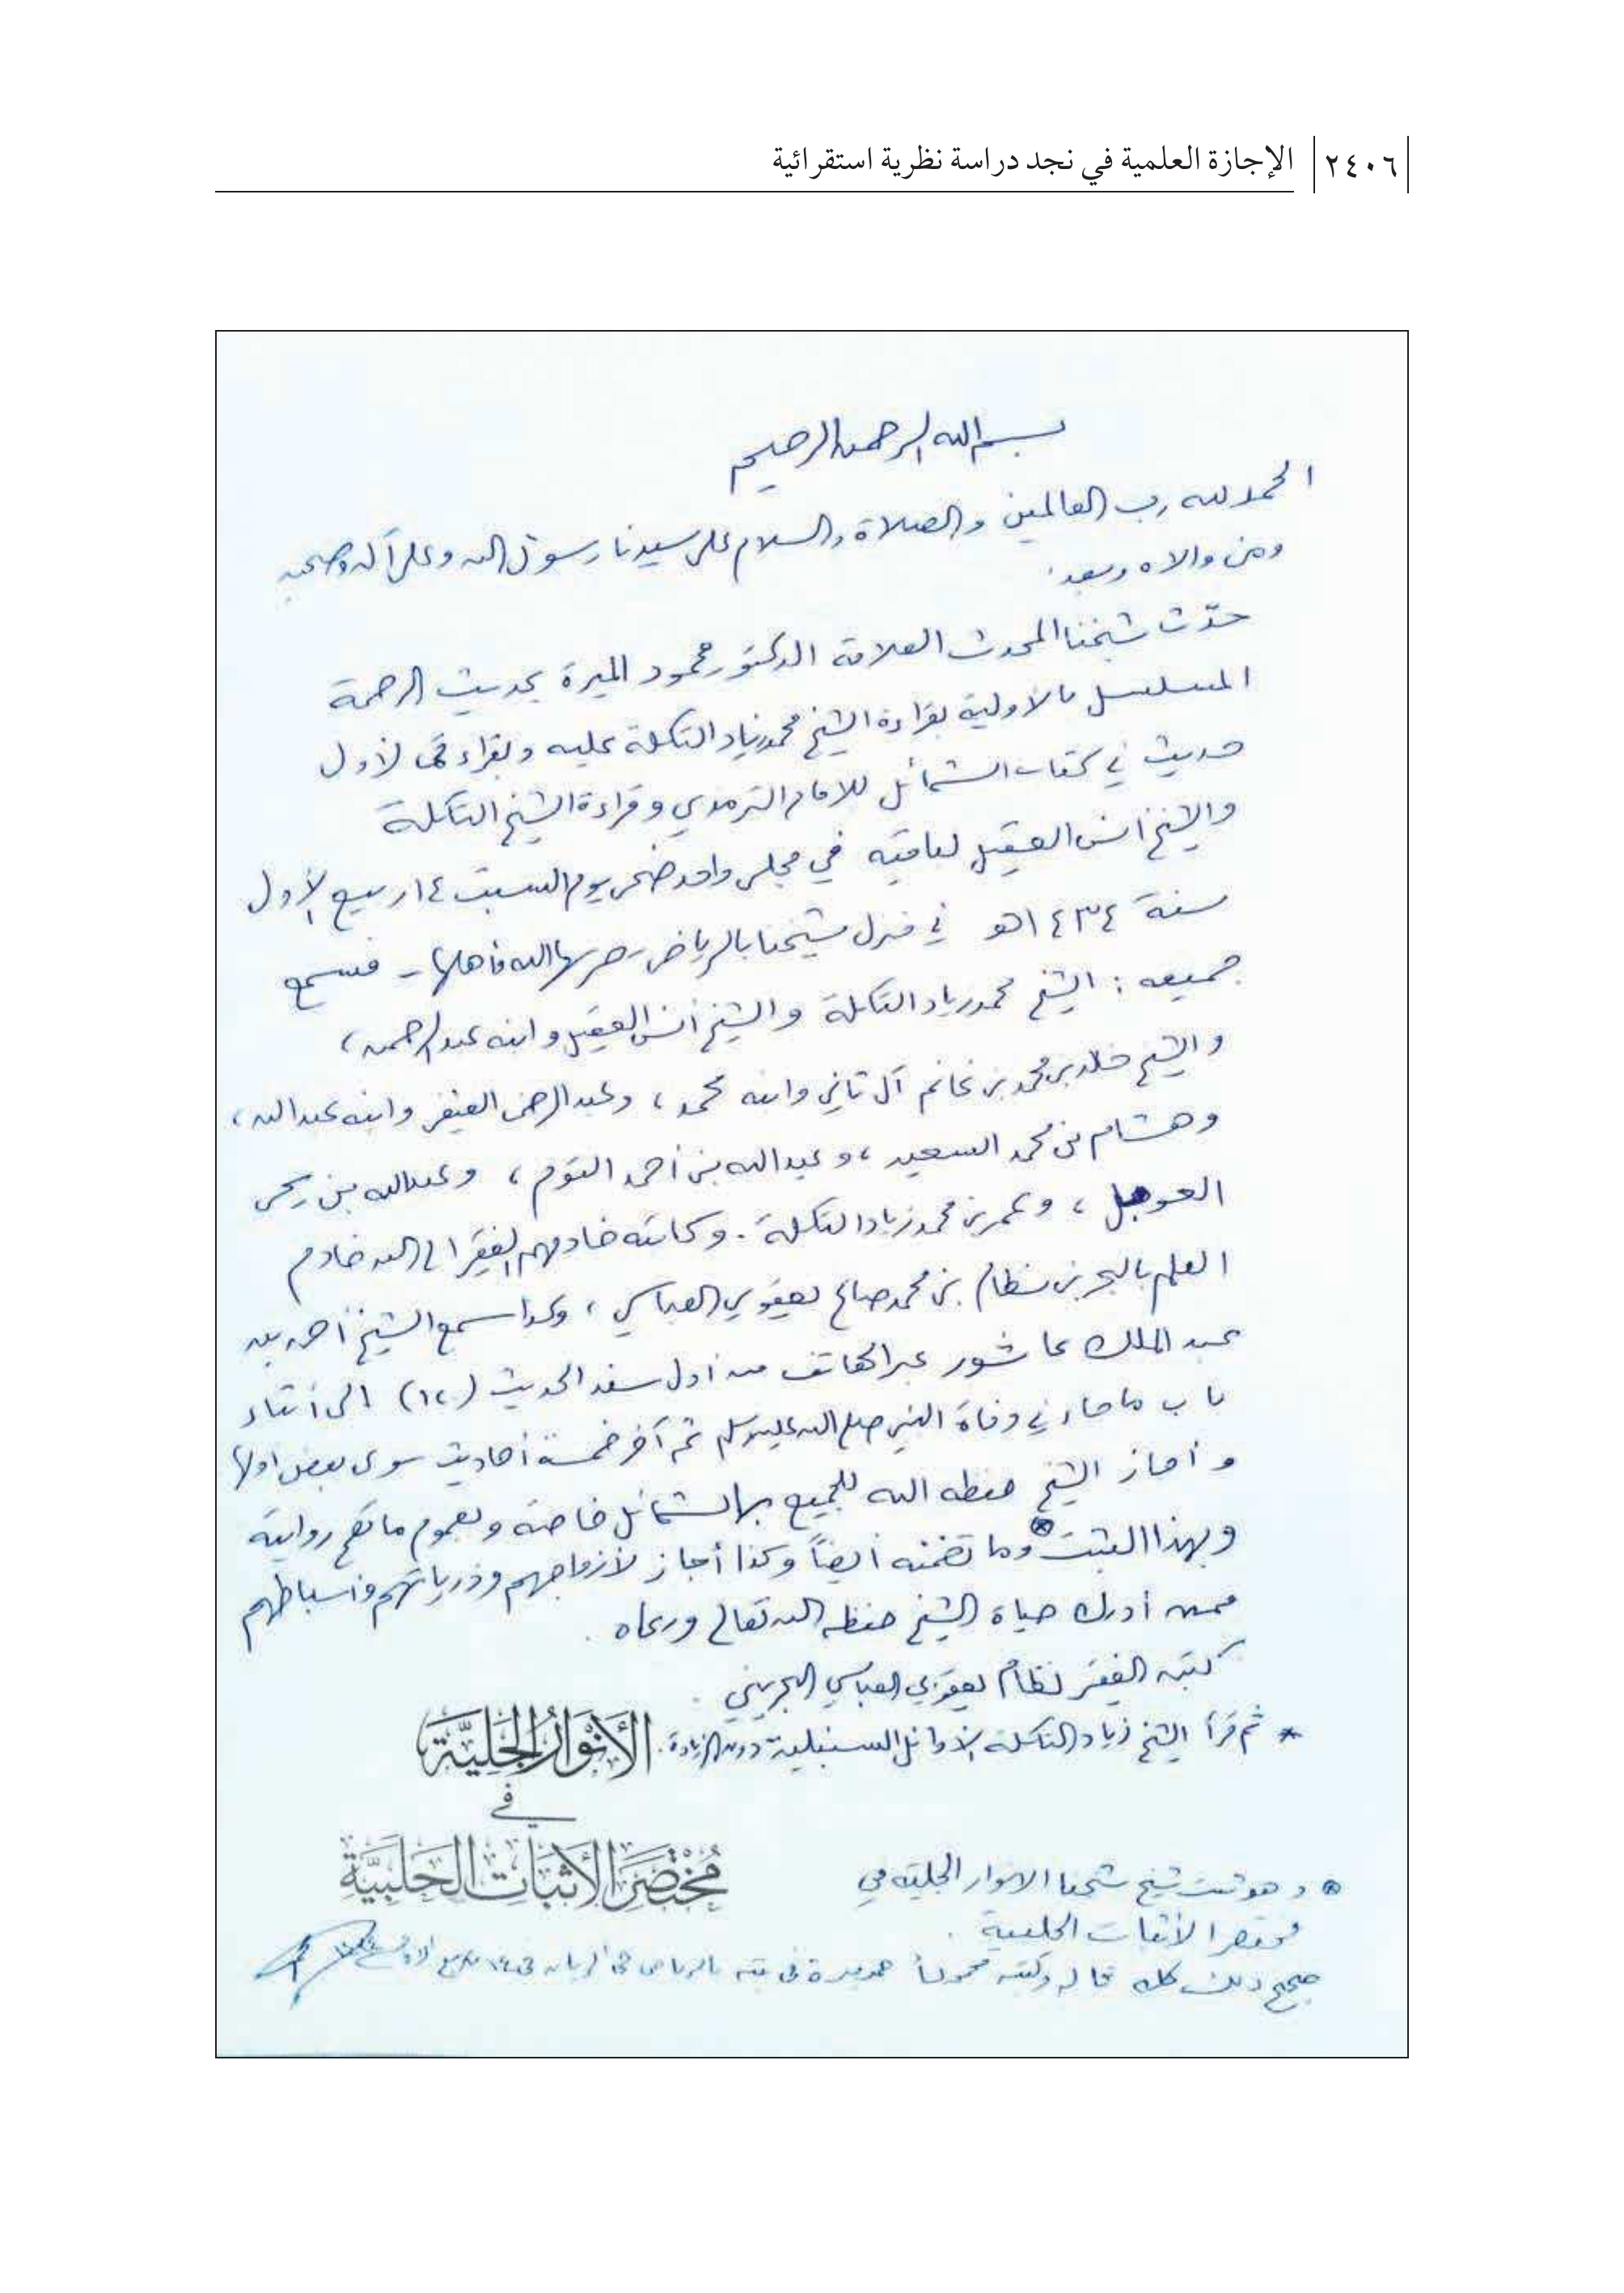 ٢٤٠٦ الإجازة العلمية في نجد دراسة نظرية استقرائية
بسم الله الرحمن الرحيم
الحمد لله رب العالمين والصلاة والسلام على سيدنا رسول الله وعلى آله وصحبه
ومن والاه وبعد.
حدّث شيخنا المحدث العلامة الدكتور محمود الميرة بحديث الرحمة
المسلسل بالأولية بقراءة الشيخ محمد زياد التكلة عليه وبقراءتي لأول
حديث في كتاب الشمائل للامام الترمذي وقراءة الشيخ التكلة
والشيخ أنس العقيل لباقيه في مجلس واحد ضحى يوم السبت ١٤ ربيع الأول
سنة ١٤٣٤هـ في منزل شيخنا بالرياض - حرسها الله وأهلها - فسمع
جميعه : الشيخ محمد زياد التكلة والشيخ أنس العقيل وابنه عبد الرحمن ،
والشيخ خالد بن محمد بن غانم آل ثاني وابنه محمد ، وعبد الرحمن العنقر وابنه عبد الله ،
وهشام بن محمد السعيد ، وعبد الله بن أحمد التوم ، وعبد الله بن يحيى
العوبل ، وعمر بن محمد زياد التكلة . وكاتبه خادمهم الفقير إلى الله خادم
العلم بالبحرين نظام بن محمد صالح يعقوبي العباسي ، وكذا سمع الشيخ أحمد بن
عبد الملك عاشور عبر الهاتف من أول سند الحديث (١٢) الى أثناء
باب ما جاء في وفاة النبي صلى الله عليه وسلم ثم آخر خمسة أحاديث سوى بعض أولها
وأجاز الشيخ حفظه الله للجميع بالشمائل خاصة وبعموم ما تصح روايته
وبهذا الثبت وما تضمنه أيضاً وكذا أجاز لأزواجهم وذرياتهم وأسباطهم
ممن أدرك حياة الشيخ حفظه الله تعالى ورعاه .
كتبه الفقير نظام يعقوبي العباسي البحريني .
* ثم قرأ الشيخ زياد التكلة الأوائل السنبلية دون الزيادة .
الأَنْوَارُ الْجَلِيَّة
في
مُخْتَصَرِ الأَثْبَاتِ الْحَلَبِيَّةِ
⊛ وهو ثبت شيخ شيخنا الانوار الجلية في
مختصر الأثبات الحلبية .
صحيح ذلك كله قاله وكتبه محمود أحمد ميرة في بيته بالرياض في ١٤ ربيع الأول